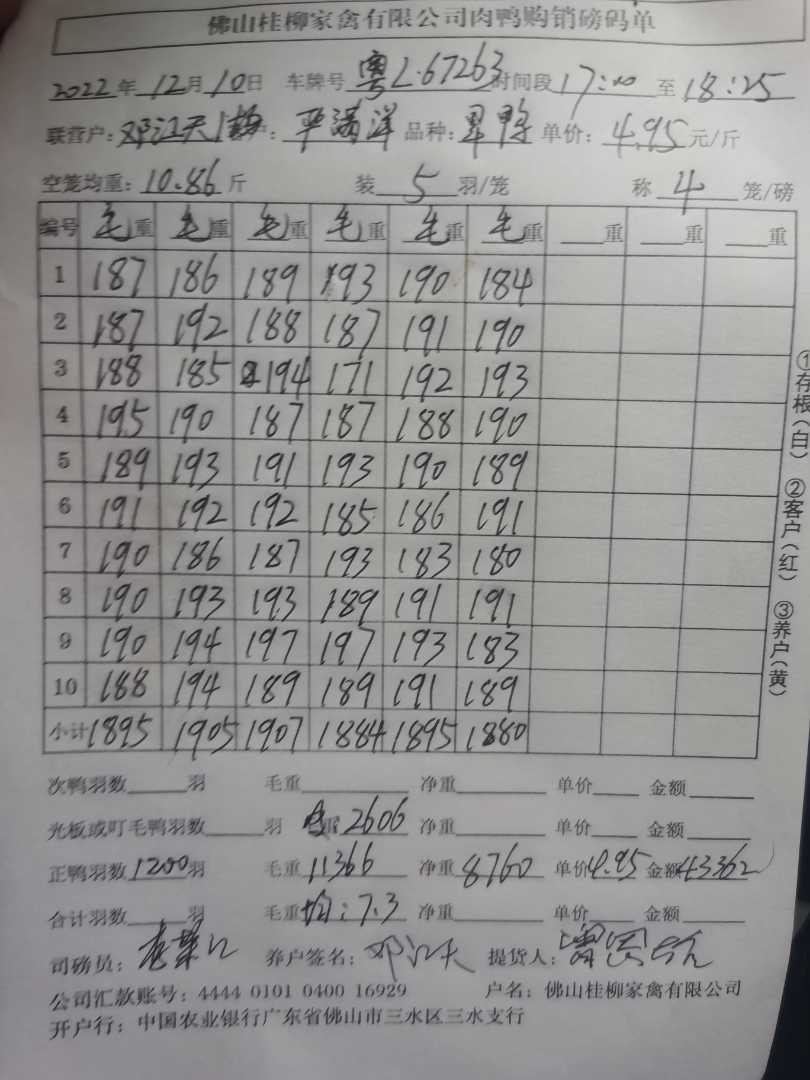 佛山桂柳家禽有限公司肉鸭购销磅码单
2022年 12月 10日 车牌号 粤L·67263 时间段 17:00 至 18:25
联营户: 邓江天 户: 平满洋 品种: 单价: 4.95 元/斤
空笼均重: 10.86 斤 装 5 羽/笼 称 4 笼/磅
编号 毛重 毛重 毛重 毛重 毛重 毛重 重 重 重
1 187 186 189 193 190 184
2 187 192 188 187 191 190
3 188 185 194 171 192 193
4 195 190 187 187 188 190
5 189 193 191 193 190 189
6 191 192 192 185 186 191
7 190 186 187 193 183 180
8 190 193 193 189 191 191
9 190 194 197 197 193 183
10 188 194 189 189 191 189
小计 1895 1905 1907 1884 1895 1880
次鸭羽数 羽 毛重 净重 单价 金额
光板或叮毛鸭羽数 羽 2606 净重 单价 金额
正鸭羽数 1200 羽 毛重 11366 净重 8760 单价 4.95 金额 43362
合计羽数 羽 毛重 均:7.3 净重 单价 金额
司磅员: 养户签名: 邓江天 提货人:
公司汇款账号: 4444 0101 0400 16929 户名: 佛山桂柳家禽有限公司
开户行: 中国农业银行广东省佛山市三水区三水支行
①存根(白) ②客户(红) ③养户(黄)